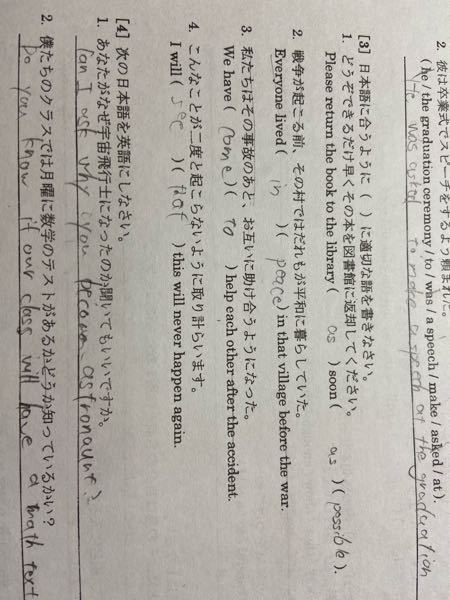 2. 彼は卒業式でスピーチをするよう頼まれた。
(he / the graduation ceremony / to / was / a speech / make / asked / at).
He was asked to make a speech at the graduation
[3] 日本語に合うように( )に適切な語を書きなさい。
1. どうぞできるだけ早くその本を図書館に返却してください。
Please return the book to the library ( as ) soon ( as )( possible ).
2. 戦争が起こる前，その村ではだれもが平和に暮らしていた。
Everyone lived ( in )( peace ) in that village before the war.
3. 私たちはその事故のあと，お互いに助け合うようになった。
We have ( come )( to ) help each other after the accident.
4. こんなことが二度と起こらないように取り計らいます。
I will ( see )( that ) this will never happen again.
[4] 次の日本語を英語にしなさい。
1. あなたがなぜ宇宙飛行士になったのか聞いてもいいですか。
Can I ask why you became astronaut?
2. 僕たちのクラスでは月曜に数学のテストがあるかどうか知っているかい？
Do you know if our class will have a math text